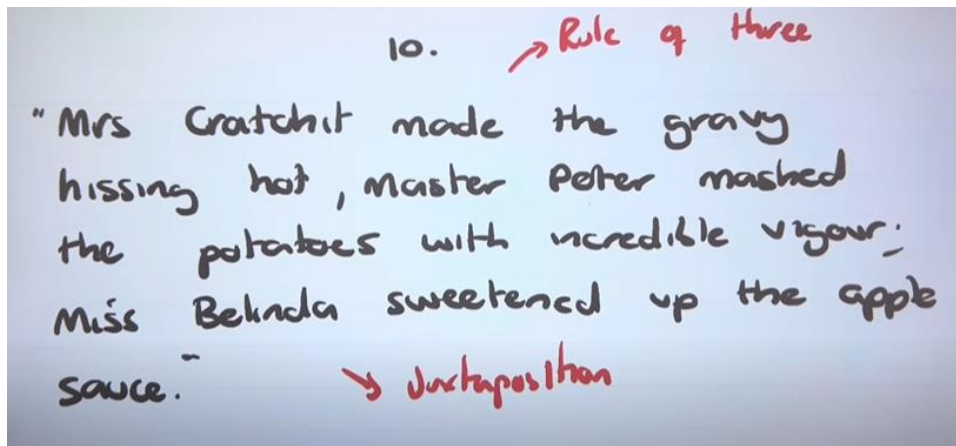 10. → Rule of three
"Mrs Cratchit made the gravy
hissing hot, Master Peter mashed
the potatoes with incredible vigour;
Miss Belinda sweetened up the apple
sauce."
→ Juxtaposition